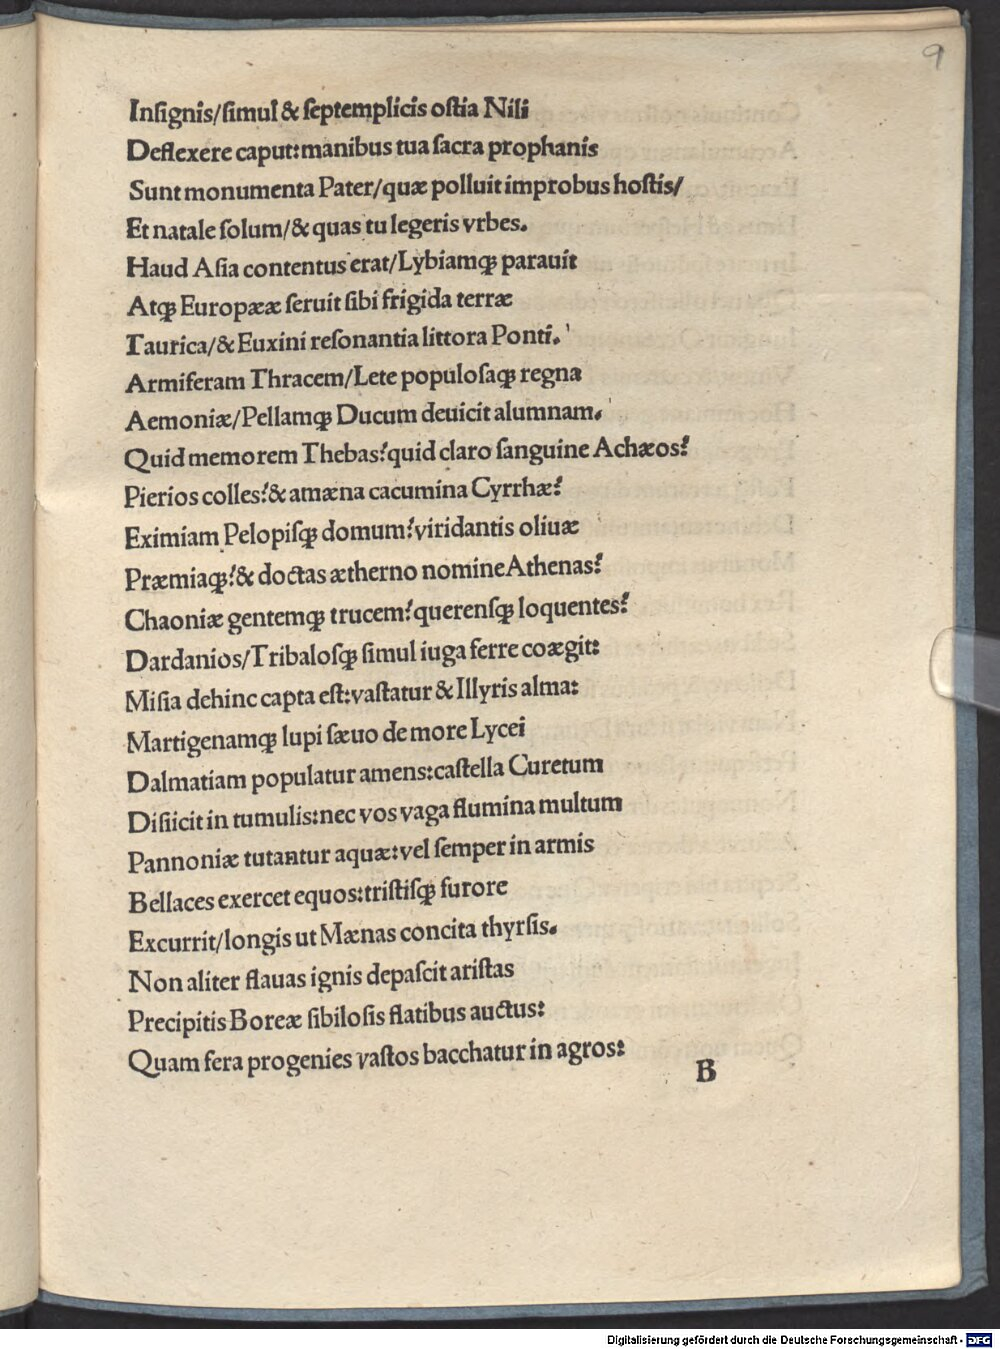 9
Inſignis/ſimul & ſeptemplicis oſtia Nili
Deflexere caput:manibus tua ſacra prophanis
Sunt monumenta Pater/quæ polluit improbus hoſtis/
Et natale ſolum/& quas tu legeris vrbes.
Haud Aſia contentus erat/Lybiamqꝫ parauit
Atqꝫ Europææ ſeruit ſibi frigida terræ
Taurica/& Euxini reſonantia littora Ponti.
Armiferam Thracem/Lete populoſaqꝫ regna
Aemoniæ/Pellamqꝫ Ducum deuicit alumnam.
Quid memorem Thebas?quid claro ſanguine Achæos?
Pierios colles?& amæna cacumina Cyrrhæ?
Eximiam Pelopiſqꝫ domum?viridantis oliuæ
Præmiaqꝫ?& doctas ætherno nomine Athenas?
Chaoniæ gentemqꝫ trucem?querenſqꝫ loquentes?
Dardanios/Tribaloſqꝫ ſimul iuga ferre coægit:
Miſia dehinc capta eſt:vaſtatur & Illyris alma:
Martigenamqꝫ lupi ſæuo de more Lycei
Dalmatiam populatur amens:caſtella Curetum
Diſiicit in tumulis:nec vos vaga flumina multum
Pannoniæ tutantur aquæ:vel ſemper in armis
Bellaces exercet equos:triſtiſqꝫ furore
Excurrit/longis ut Mænas concita thyrſis.
Non aliter flauas ignis depaſcit ariſtas
Precipitis Boreæ ſibiloſis flatibus auctus:
Quam fera progenies vaſtos bacchatur in agros:
B
Digitalisierung gefördert durch die Deutsche Forschungsgemeinschaft - DFG